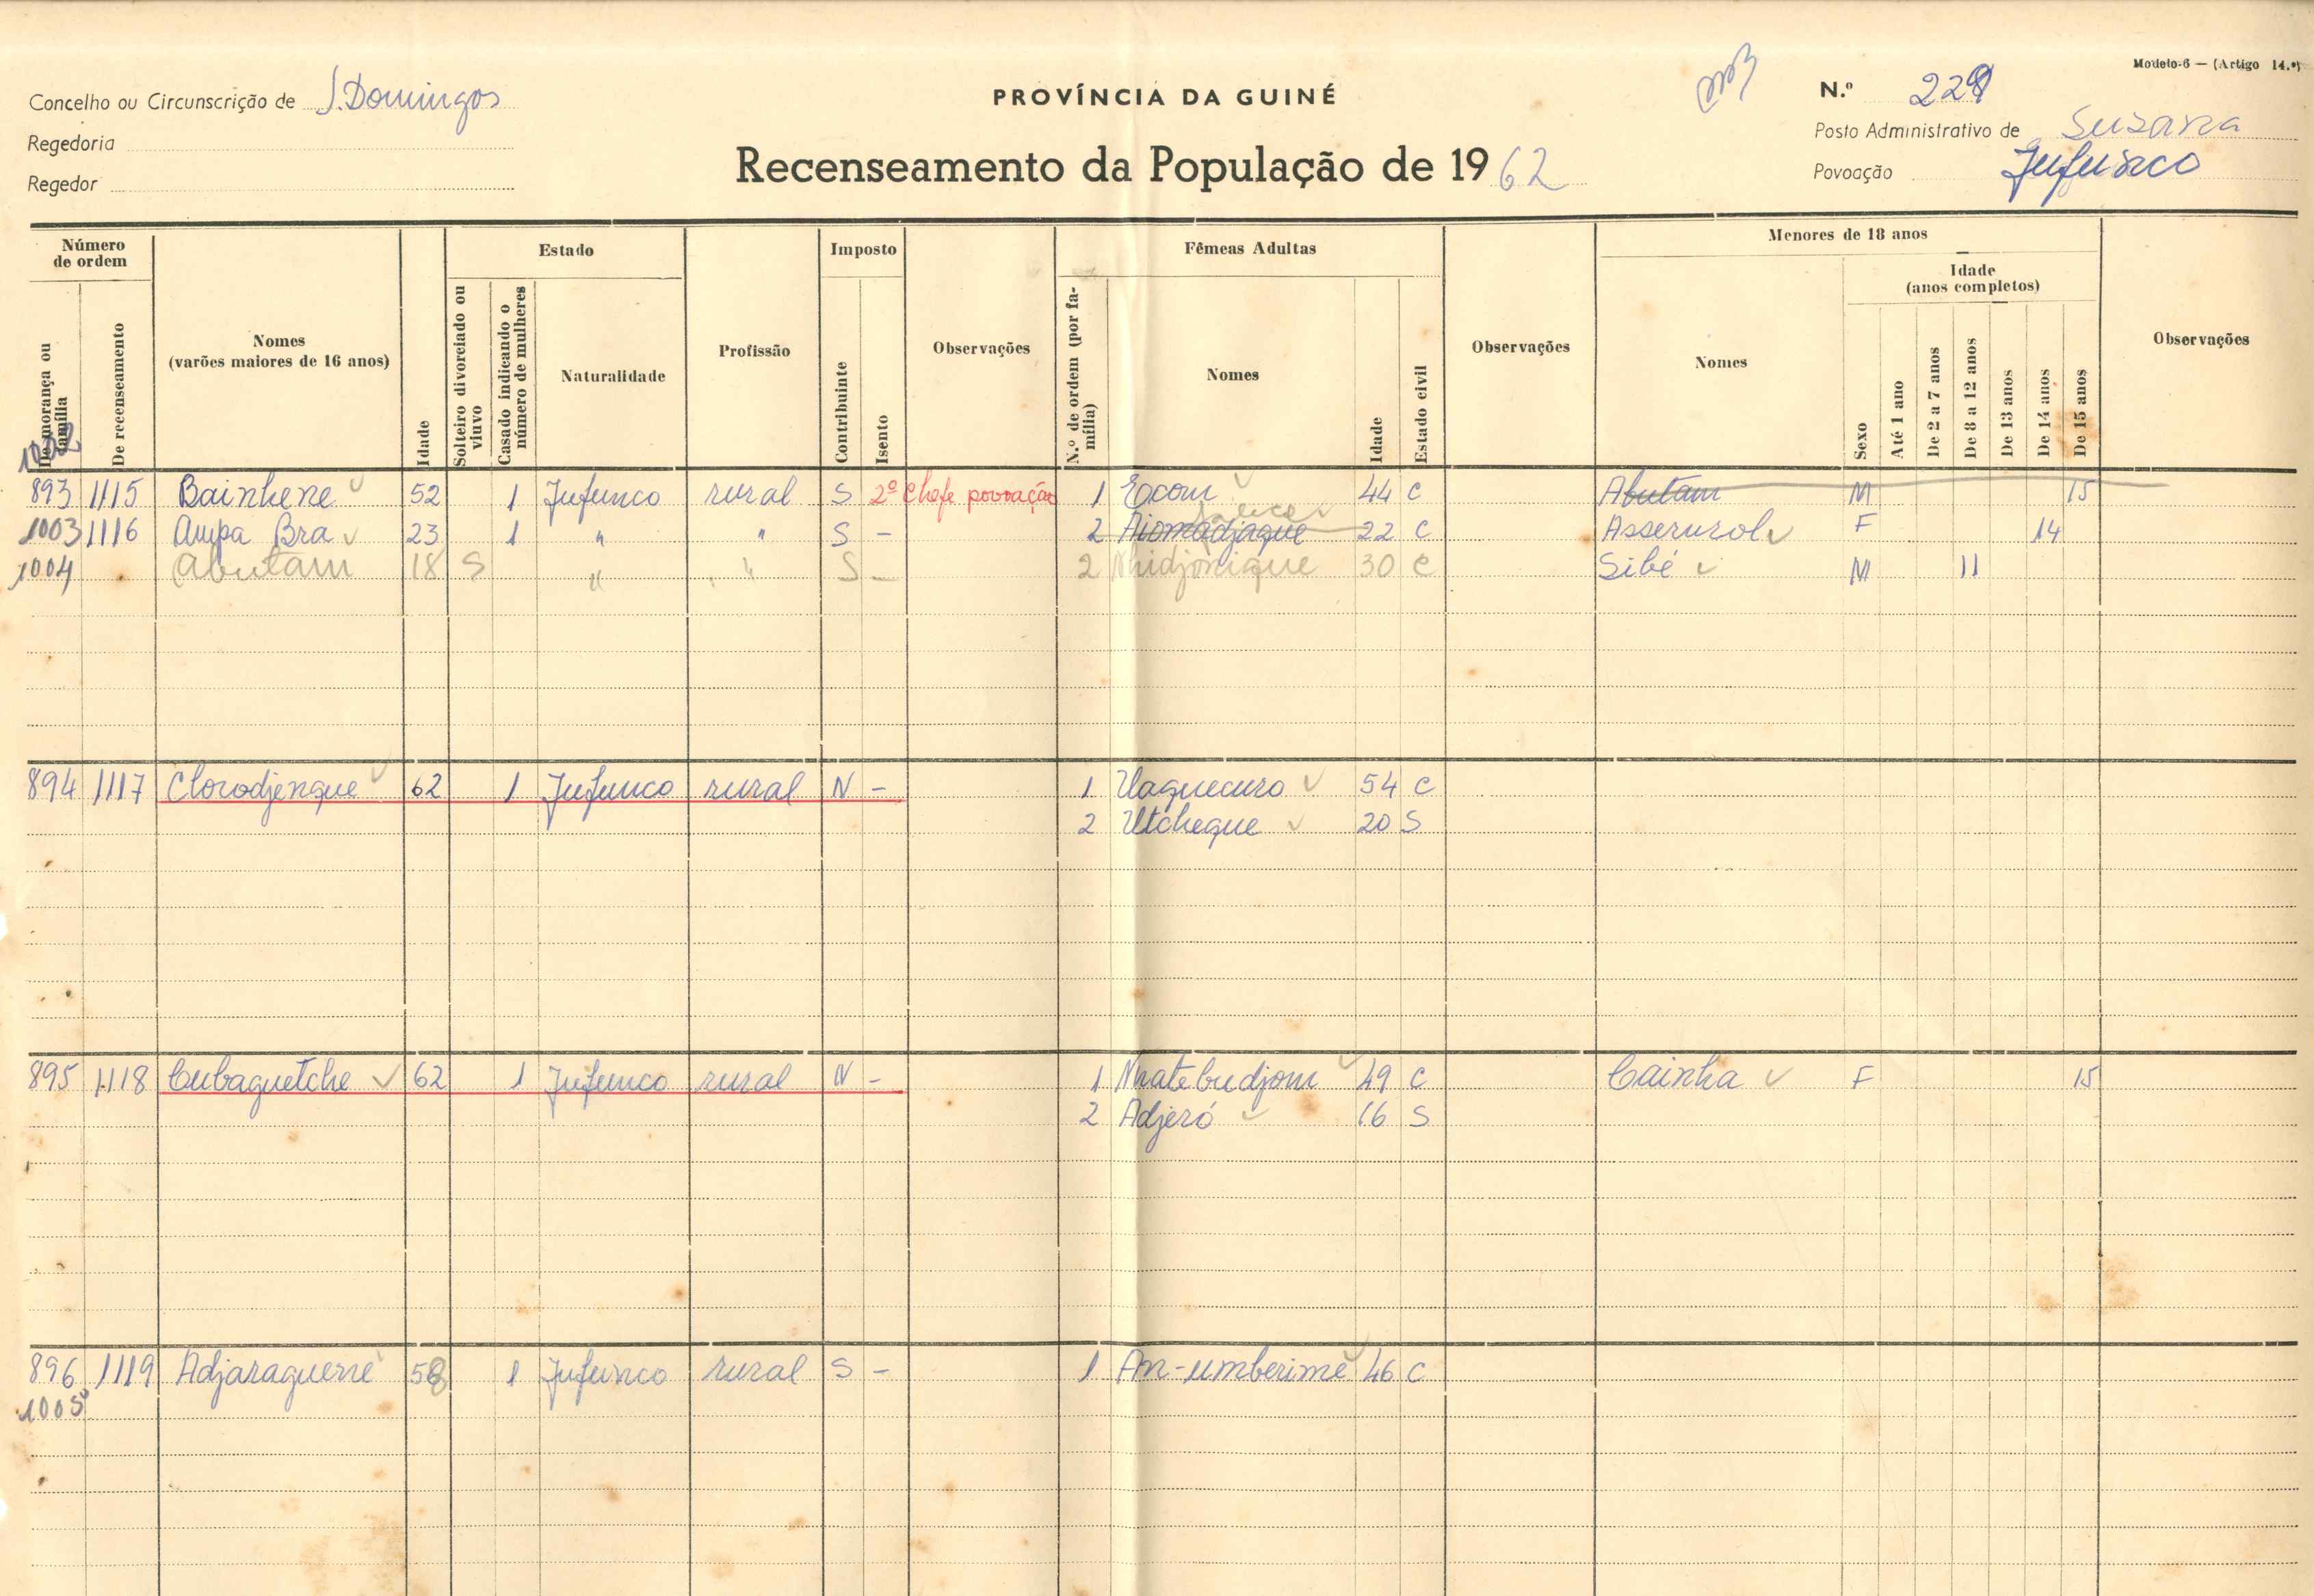 Modelo-6 — (Artigo 14.º)
Concelho ou Circunscrição de S. Domingos
PROVÍNCIA DA GUINÉ
N.º 229
Regedoria
Posto Administrativo de Susana
Regedor
Recenseamento da População de 1962
Povoação Jufunco
Número de ordem
De morança ou família
De recenseamento
Nomes (varões maiores de 16 anos)
Idade
Estado
Solteiro divorciado ou viuvo
Casado indicando o número de mulheres
Naturalidade
Profissão
Imposto
Contribuinte
Isento
Observações
Fêmeas Adultas
N.º de ordem (por família)
Nomes
Idade
Estado civil
Observações
Menores de 18 anos
Nomes
Sexo
Idade (anos completos)
Até 1 ano
De 2 a 7 anos
De 8 a 12 anos
De 13 anos
De 14 anos
De 15 anos
Observações
1002
893 1115 Bainhene 52 1 Jufunco rural S 2º Chefe povoação 1 Eocom 44 C Abutam M 15
1003 1116 Ampa Bra 23 1 " " S - 2 Aiomadjaque 22 C Asserurol F 14
1004 Abutam 18 S " " S - 2 Nhidjonique 30 C Sibé M 11
894 1117 Clorodjenque 62 1 Jufunco rural N - 1 Uaquecuro 54 C
2 Utcheque 20 S
895 1118 Cubaguetche 62 1 Jufunco rural N - 1 Nhatebudjom 49 C Cainha F 15
2 Adjeró 16 S
896 1119 Adjaraguerré 58 1 Jufunco rural S - 1 An-umberime 46 C
1005